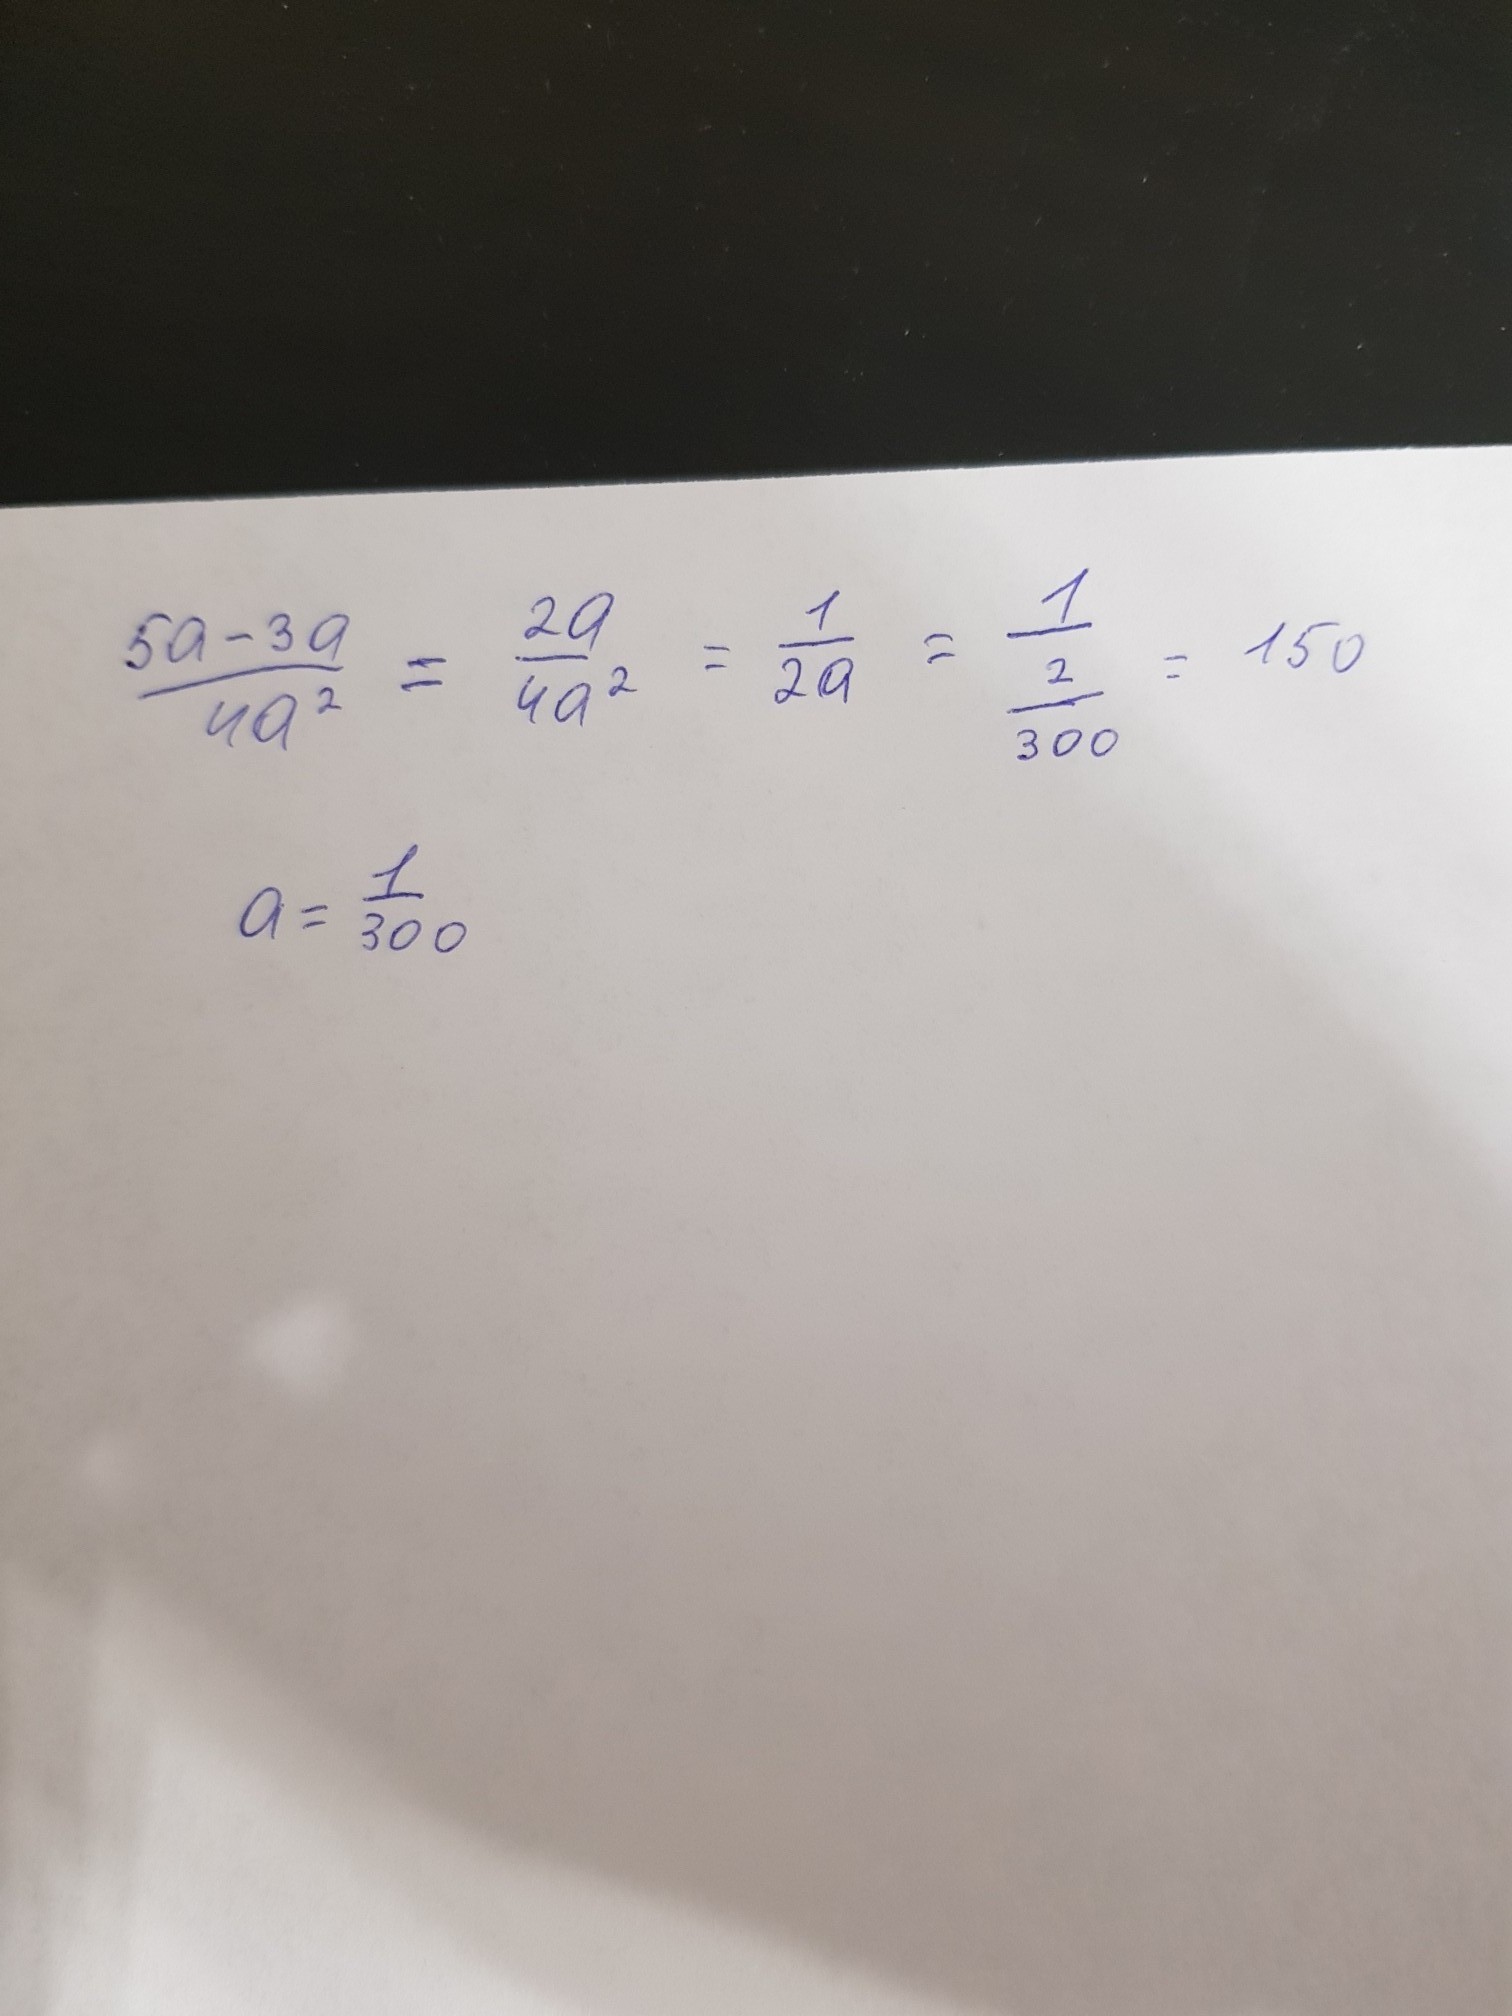 (5a-3a)/(4a²) = (2a)/(4a²) = 1/(2a) = 1/(2/300) = 150
a = 1/300